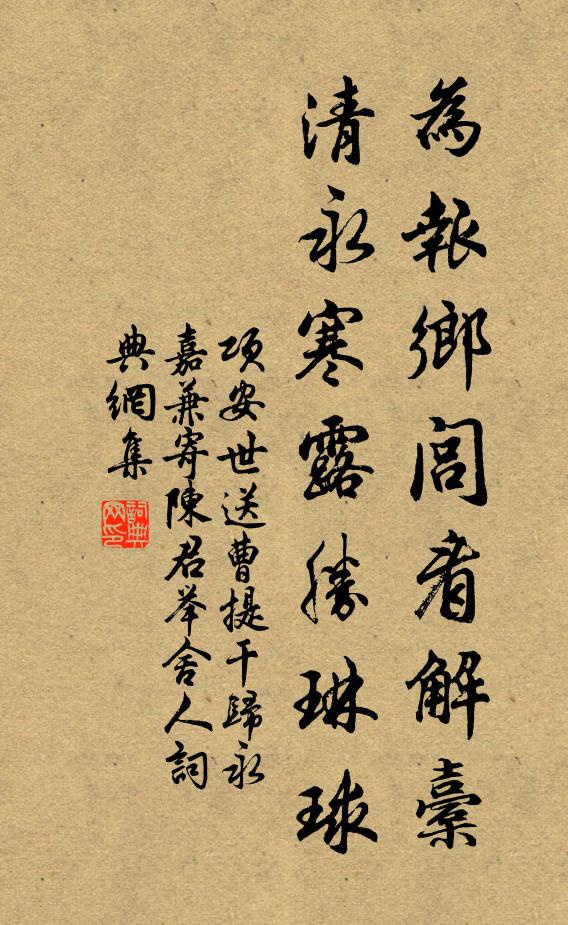 為報鄉閭看解橐
清永寒露勝琳球
項安世送曹提干歸永
嘉兼寄陳君舉舍人詞
典網集
詞典
网印